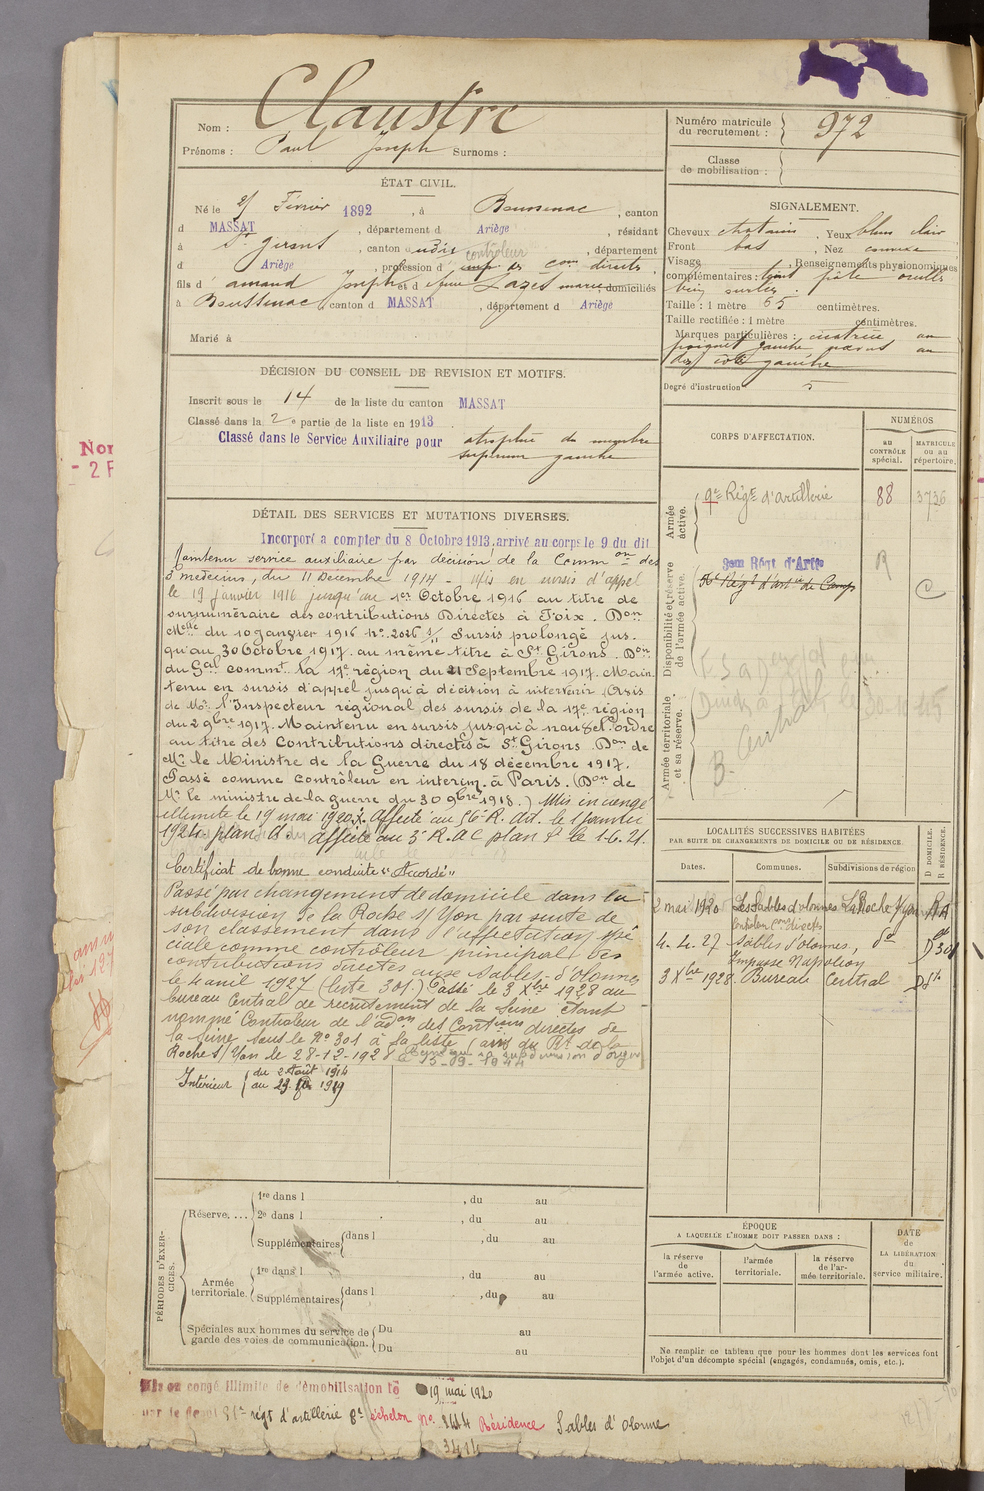 Nom : Claustre
Prénoms : Paul Joseph Surnoms :
Numéro matricule du recrutement : 972
Classe de mobilisation :
ÉTAT CIVIL.
Né le 2 Février 1892, à Boussenac, canton
d MASSAT, département d Ariège, résidant
à St Girons, canton dudit, département
d Ariège, profession d contrôleur des con directes
fils d Armand Joseph et d Lazes marie domiciliés
à Boussenac, canton d MASSAT, département d Ariège
Marié à
SIGNALEMENT.
Cheveux chatains, Yeux bleu clair
Front bas, Nez convexe
Visage, Renseignements physionomiques
complémentaires : teint pâle oreilles
bien ourlées.
Taille : 1 mètre 65 centimètres.
Taille rectifiée : 1 mètre centimètres.
Marques particulières : cicatrice au
poignet gauche naevus au
dos côté gauche
Degré d'instruction 5
DÉCISION DU CONSEIL DE REVISION ET MOTIFS.
Inscrit sous le n° 14 de la liste du canton MASSAT
Classé dans la 2e partie de la liste en 1913.
Classé dans le Service Auxiliaire pour atrophie du membre
supérieur gauche
CORPS D'AFFECTATION.
NUMÉROS
au CONTRÔLE spécial.
MATRICULE ou au répertoire.
Armée active.
9e Régt d'artillerie 88 3736
Disponibilité et réserve de l'armée active.
3em Régt d'Artie
56e Régt d'artie de Camp
Armée territoriale et sa réserve.
B. Central
DÉTAIL DES SERVICES ET MUTATIONS DIVERSES.
Incorporé à compter du 8 Octobre 1913, arrivé au corps le 9 du dit
Maintenu service auxiliaire par décision de la Common des
3 médecins, du 11 Décembre 1914 - Mis en sursis d'appel
le 19 janvier 1916 jusqu'au 1er Octobre 1916 au titre de
surnuméraire des contributions Directes à Foix. Don
Melle du 10 janvier 1916 No 2026 s/ Sursis prolongé jus-
qu'au 30 Octobre 1917. au même titre à St Girons. Don
du Gal commt la 17e région du 21 Septembre 1917. Main-
tenu en sursis d'appel jusqu'à décision à intervenir (Avis
de Mr l'Inspecteur régional des sursis de la 17e région
du 2 9bre 1917. Maintenu en sursis jusqu'à nouvel ordre
au titre des Contributions directes à St Girons. Don de
Mr le Ministre de la Guerre du 18 décembre 1917.
Passé comme Contrôleur en interim à Paris. (Don de
Mr le ministre de la guerre du 30 9bre 1918.) Mis en congé
illimité le 19 mai 1920. Affecté au 56e R. Art. le 1 janvier
1924 plan A. Affecté au 3e R.A.C plan le 1-6-21.
Certificat de bonne conduite "Accordé"
Passé par changement de domicile dans la
subdivision de la Roche s/ Yon par suite de
son classement dans l'affectation spé
ciale comme contrôleur principal des
contributions directes aux Sables-d'olonnes
le 4 avril 1927 (liste 301.) Passé le 3 Xbre 1928 au
bureau Central de recrutement de la Seine étant
nommé Contrôleur de l'adon des Contions directes de
la Seine sous le N° 301 à la liste (avis du Rt de la
Roche S/ Yon le 28-12-1928
Intérieur { du 2 Août 1914
au 29 1919
LOCALITÉS SUCCESSIVES HABITÉES
PAR SUITE DE CHANGEMENTS DE DOMICILE OU DE RÉSIDENCE.
Dates. Communes. Subdivisions de région D DOMICILE. R RÉSIDENCE.
2 mai 1920 Les Sables d'olonnes La Roche s/Yon R
4-4-27 Sables d'olonnes, do D
Impasse Napoléon
3 Xbre 1928. Bureau Central D
PÉRIODES D'EXERCICES.
Réserve.... 1re dans l , du au
2e dans l , du au
Supplémentaires dans l , du au
Armée territoriale. 1re dans l , du au
Supplémentaires dans l , du au
Spéciales aux hommes du service de garde des voies de communication. Du au
Du au
ÉPOQUE
A LAQUELLE L'HOMME DOIT PASSER DANS :
la réserve de l'armée active.
l'armée territoriale.
la réserve de l'armée territoriale.
DATE de LA LIBÉRATION du service militaire.
Ne remplir ce tableau que pour les hommes dont les services font
l'objet d'un décompte spécial (engagés, condamnés, omis, etc.).
Mis en congé illimité de démobilisation le 19 mai 1920
par le dépôt régt d'artillerie échelon No. 3444 Résidence Sables d'olonne
3414